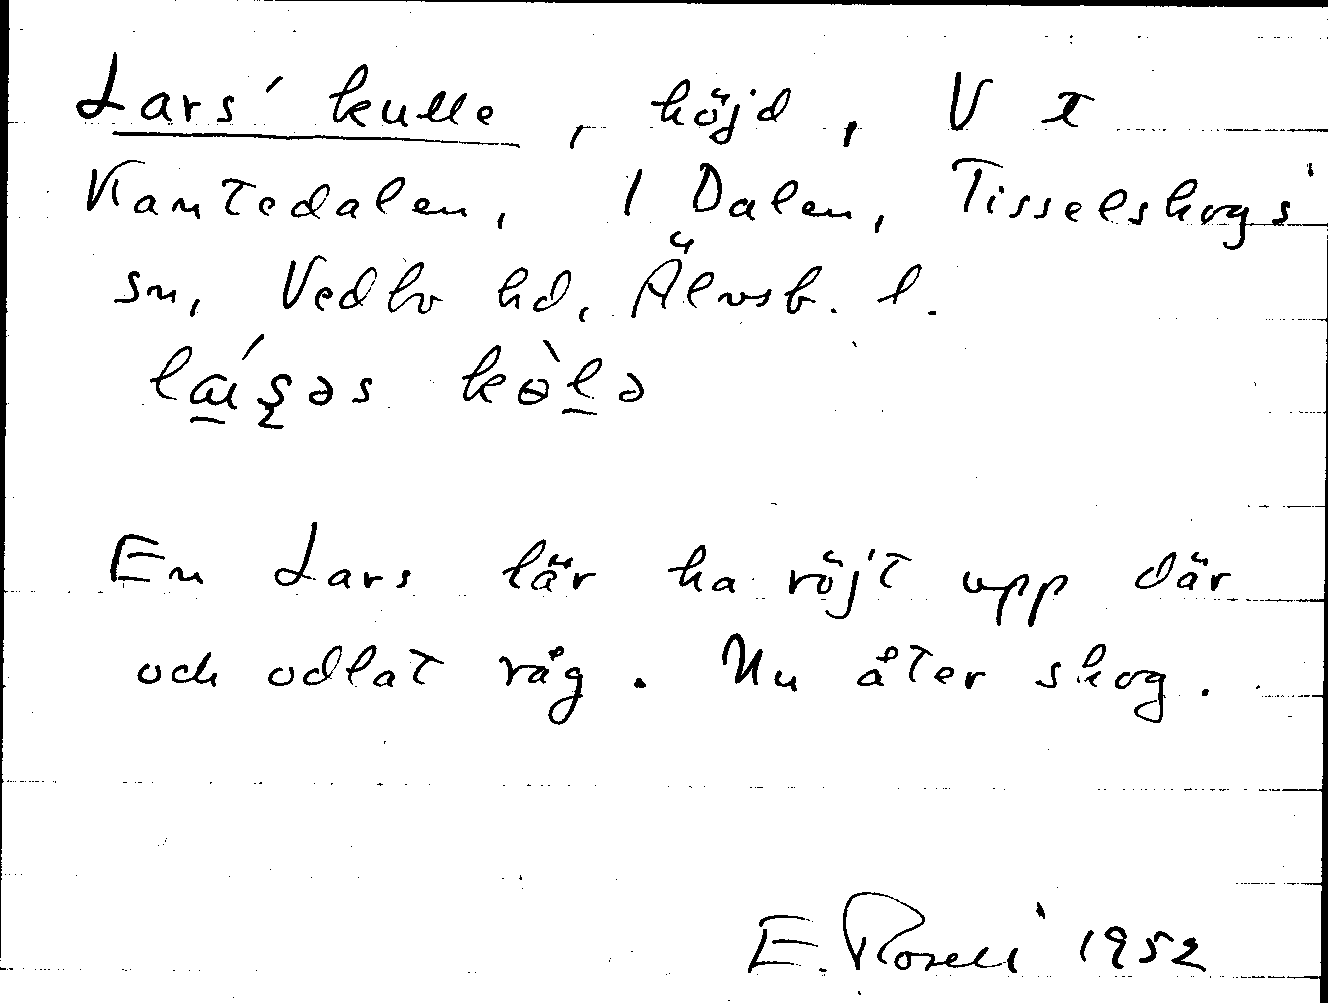 Lars' kulle, höjd, V
Kantedalen, 1 Dalen, Tisselskogs
sn, Vedbo hd, Älvsb. l.
En Lars lär ha röjt upp där
och odlat råg. Nu åter skog.
E. Rosell 1952